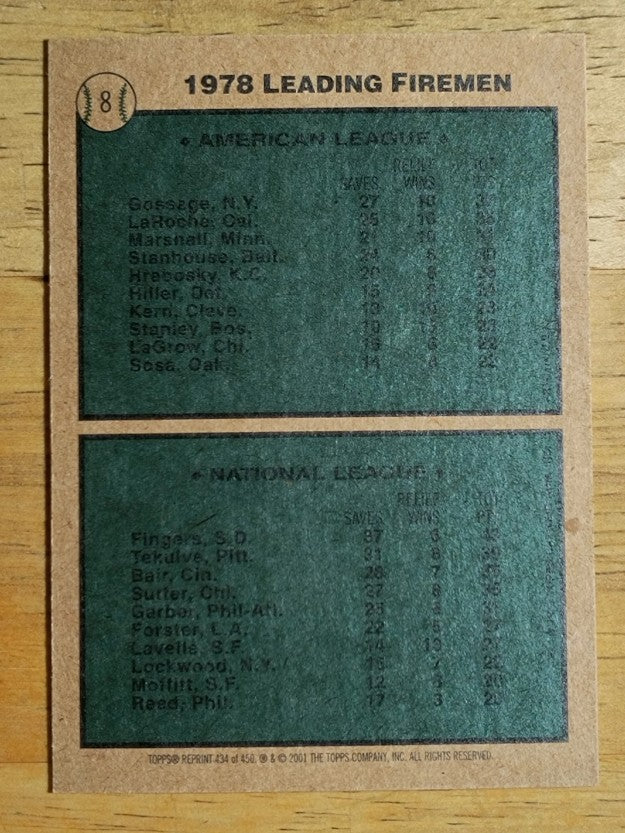 8
1978 LEADING FIREMEN
AMERICAN LEAGUE
RELIEF TOT.
SAVES WINS
Gossage, N.Y. 27 10 37
LaRoche, Cal. 25 10 35
Marshall, Minn. 21 10 31
Stanhouse, Balt. 24 6 30
Hrabosky, K.C. 20 8 28
Hiller, Det. 15
Kern, Cleve. 13 10 23
Stanley, Bos. 10
LaGrow, Chi. 16 6 22
Sosa, Oak. 14 8 22
NATIONAL LEAGUE
RELIEF TOT.
SAVES WINS PTS.
Fingers, S.D. 37 6 43
Tekulve, Pitt. 31 8 39
Bair, Cin. 28 7 35
Sutter, Chi. 27 8 35
Garber, Phil-Atl. 25
Forster, L.A. 22 5 27
Lavelle, S.F. 14 13 27
Lockwood, N.Y. 15 7 22
Moffitt, S.F. 12 8 20
Reed, Phil. 17 3 20
TOPPS® REPRINT 434 of 450. ® & © 2001 THE TOPPS COMPANY, INC. ALL RIGHTS RESERVED.